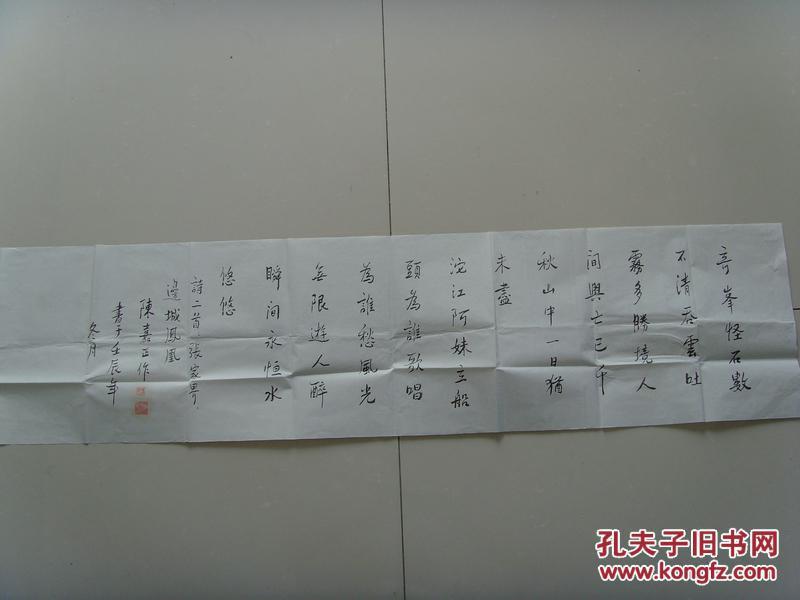 奇峯怪石數
不清吞雲吐
霧多勝境人
間與亡已千
秋山中一日猶
未盡
沱江阿妹立船
頭為誰歌唱
為誰愁風光
無限遊人醉
瞬间永恒水
悠悠
詩二首張家界、
邊城鳳凰
陳嘉正作
書于壬辰年
冬月
孔夫子旧书网
www.kongfz.com